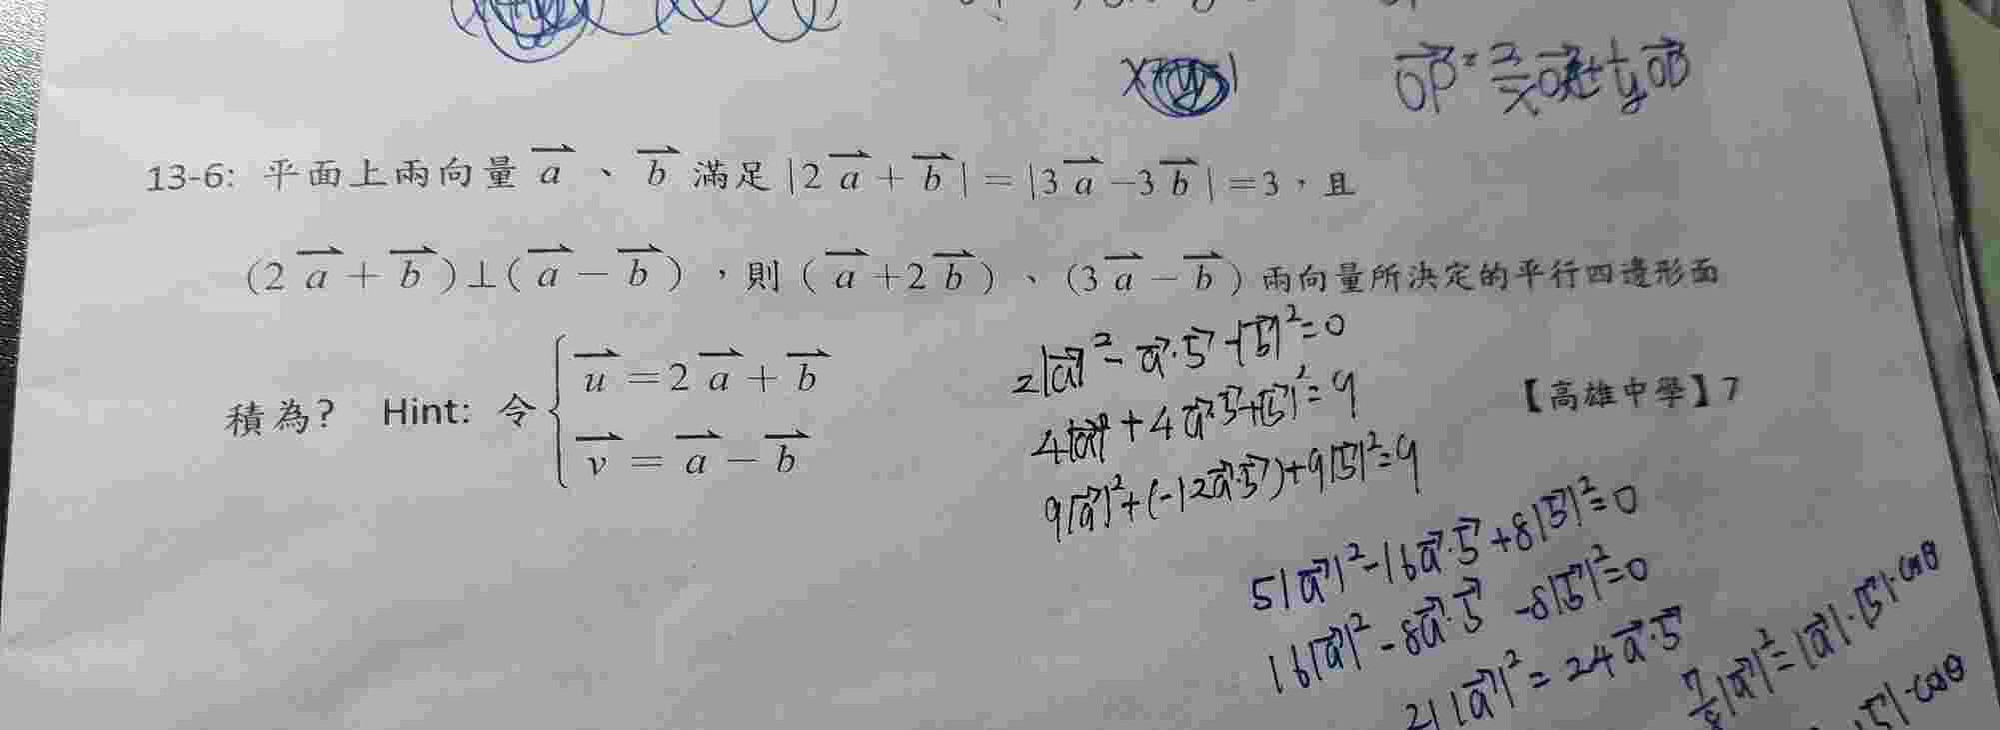 x+y=1
OP⃗ = 2/x OA⃗ + 1/y OB⃗
13-6: 平面上兩向量 a⃗ 、 b⃗ 滿足 |2a⃗ + b⃗| = |3a⃗ −3b⃗| =3,且
(2a⃗ + b⃗)⊥(a⃗ − b⃗) ,則 (a⃗ +2b⃗) 、 (3a⃗ − b⃗) 兩向量所決定的平行四邊形面
積為? Hint: 令 { u⃗ =2a⃗ + b⃗
v⃗ = a⃗ − b⃗
【高雄中學】7
2|a⃗|² − a⃗·b⃗ −|b⃗|² =0
4|a⃗|² + 4a⃗·b⃗+|b⃗|² = 9
9|a⃗|²+(−12a⃗·b⃗)+9|b⃗|²=9
5|a⃗|²−16a⃗·b⃗ +8|b⃗|²=0
16|a⃗|² − 8a⃗·b⃗ −8|b⃗|²=0
21|a⃗|² = 24a⃗·b⃗
7/8|a⃗|²=|a⃗|·|b⃗|·cosθ
|b⃗|·cosθ